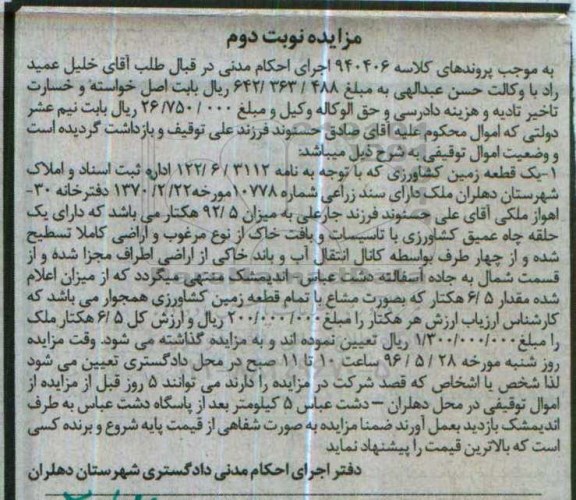 مزایده نوبت دوم
به موجب پروندهای کلاسه ۹۴۰۴۰۶ اجرای احکام مدنی در قبال طلب آقای خلیل عمید
راد با وکالت حسن عبدالهی به مبلغ ۴۸۸ / ۳۶۳ /۶۴۲ ریال بابت اصل خواسته و خسارت
تاخیر تادیه و هزینه دادرسی و حق الوکاله وکیل و مبلغ ۰۰۰ /۲۶/۷۵۰ ریال بابت نیم عشر
دولتی که اموال محکوم علیه آقای صادق حسنوند فرزند علی توقیف و بازداشت گردیده است
و وضعیت اموال توقیفی به شرح ذیل میباشد:
۱-یک قطعه زمین کشاورزی که با توجه به نامه ۳۱۱۲ / ۶ /۱۲۲ اداره ثبت اسناد و املاک
شهرستان دهلران ملک دارای سند زراعی شماره ۱۰۷۷۸مورخه۱۳۷۰/۲/۲۲ دفترخانه ۳۰-
اهواز ملکی آقای علی حسنوند فرزند جارعلی به میزان ۵ /۹۲ هکتار می باشد که دارای یک
حلقه چاه عمیق کشاورزی با تاسیسات و بافت خاک از نوع مرغوب و اراضی کاملا تسطیح
شده و از چهار طرف بواسطه کانال انتقال آب و باند خاکی از اراضی اطراف مجزا شده و از
قسمت شمال به جاده آسفالته دشت عباس- اندیمشک منتهی میگردد که از میزان اعلام
شده مقدار ۵ /۶ هکتار که بصورت مشاع با تمام قطعه زمین کشاورزی همجوار می باشد که
کارشناس ارزیاب ارزش هر هکتار را مبلغ۲۰۰/۰۰۰/۰۰۰ ریال و ارزش کل ۵ /۶ هکتار ملک
را مبلغ۱/۳۰۰/۰۰۰/۰۰۰ ریال تعیین نموده اند و به مزایده گذاشته می شود. وقت مزایده
روز شنبه مورخه ۲۸ / ۵ / ۹۶ ساعت ۱۰ تا ۱۱ صبح در محل دادگستری تعیین می شود
لذا شخص یا اشخاص که قصد شرکت در مزایده را دارند می توانند ۵ روز قبل از مزایده از
اموال توقیفی در محل دهلران – دشت عباس ۵ کیلومتر بعد از پاسگاه دشت عباس به طرف
اندیمشک بازدید بعمل آورند ضمنا مزایده به صورت شفاهی از قیمت پایه شروع و برنده کسی
است که بالاترین قیمت را پیشنهاد نماید
دفتر اجرای احکام مدنی دادگستری شهرستان دهلران